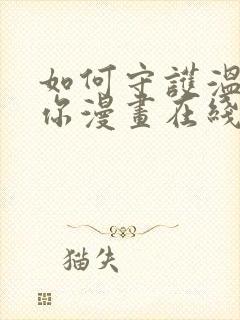 如何守護溫
你漫畫在綫
猫失